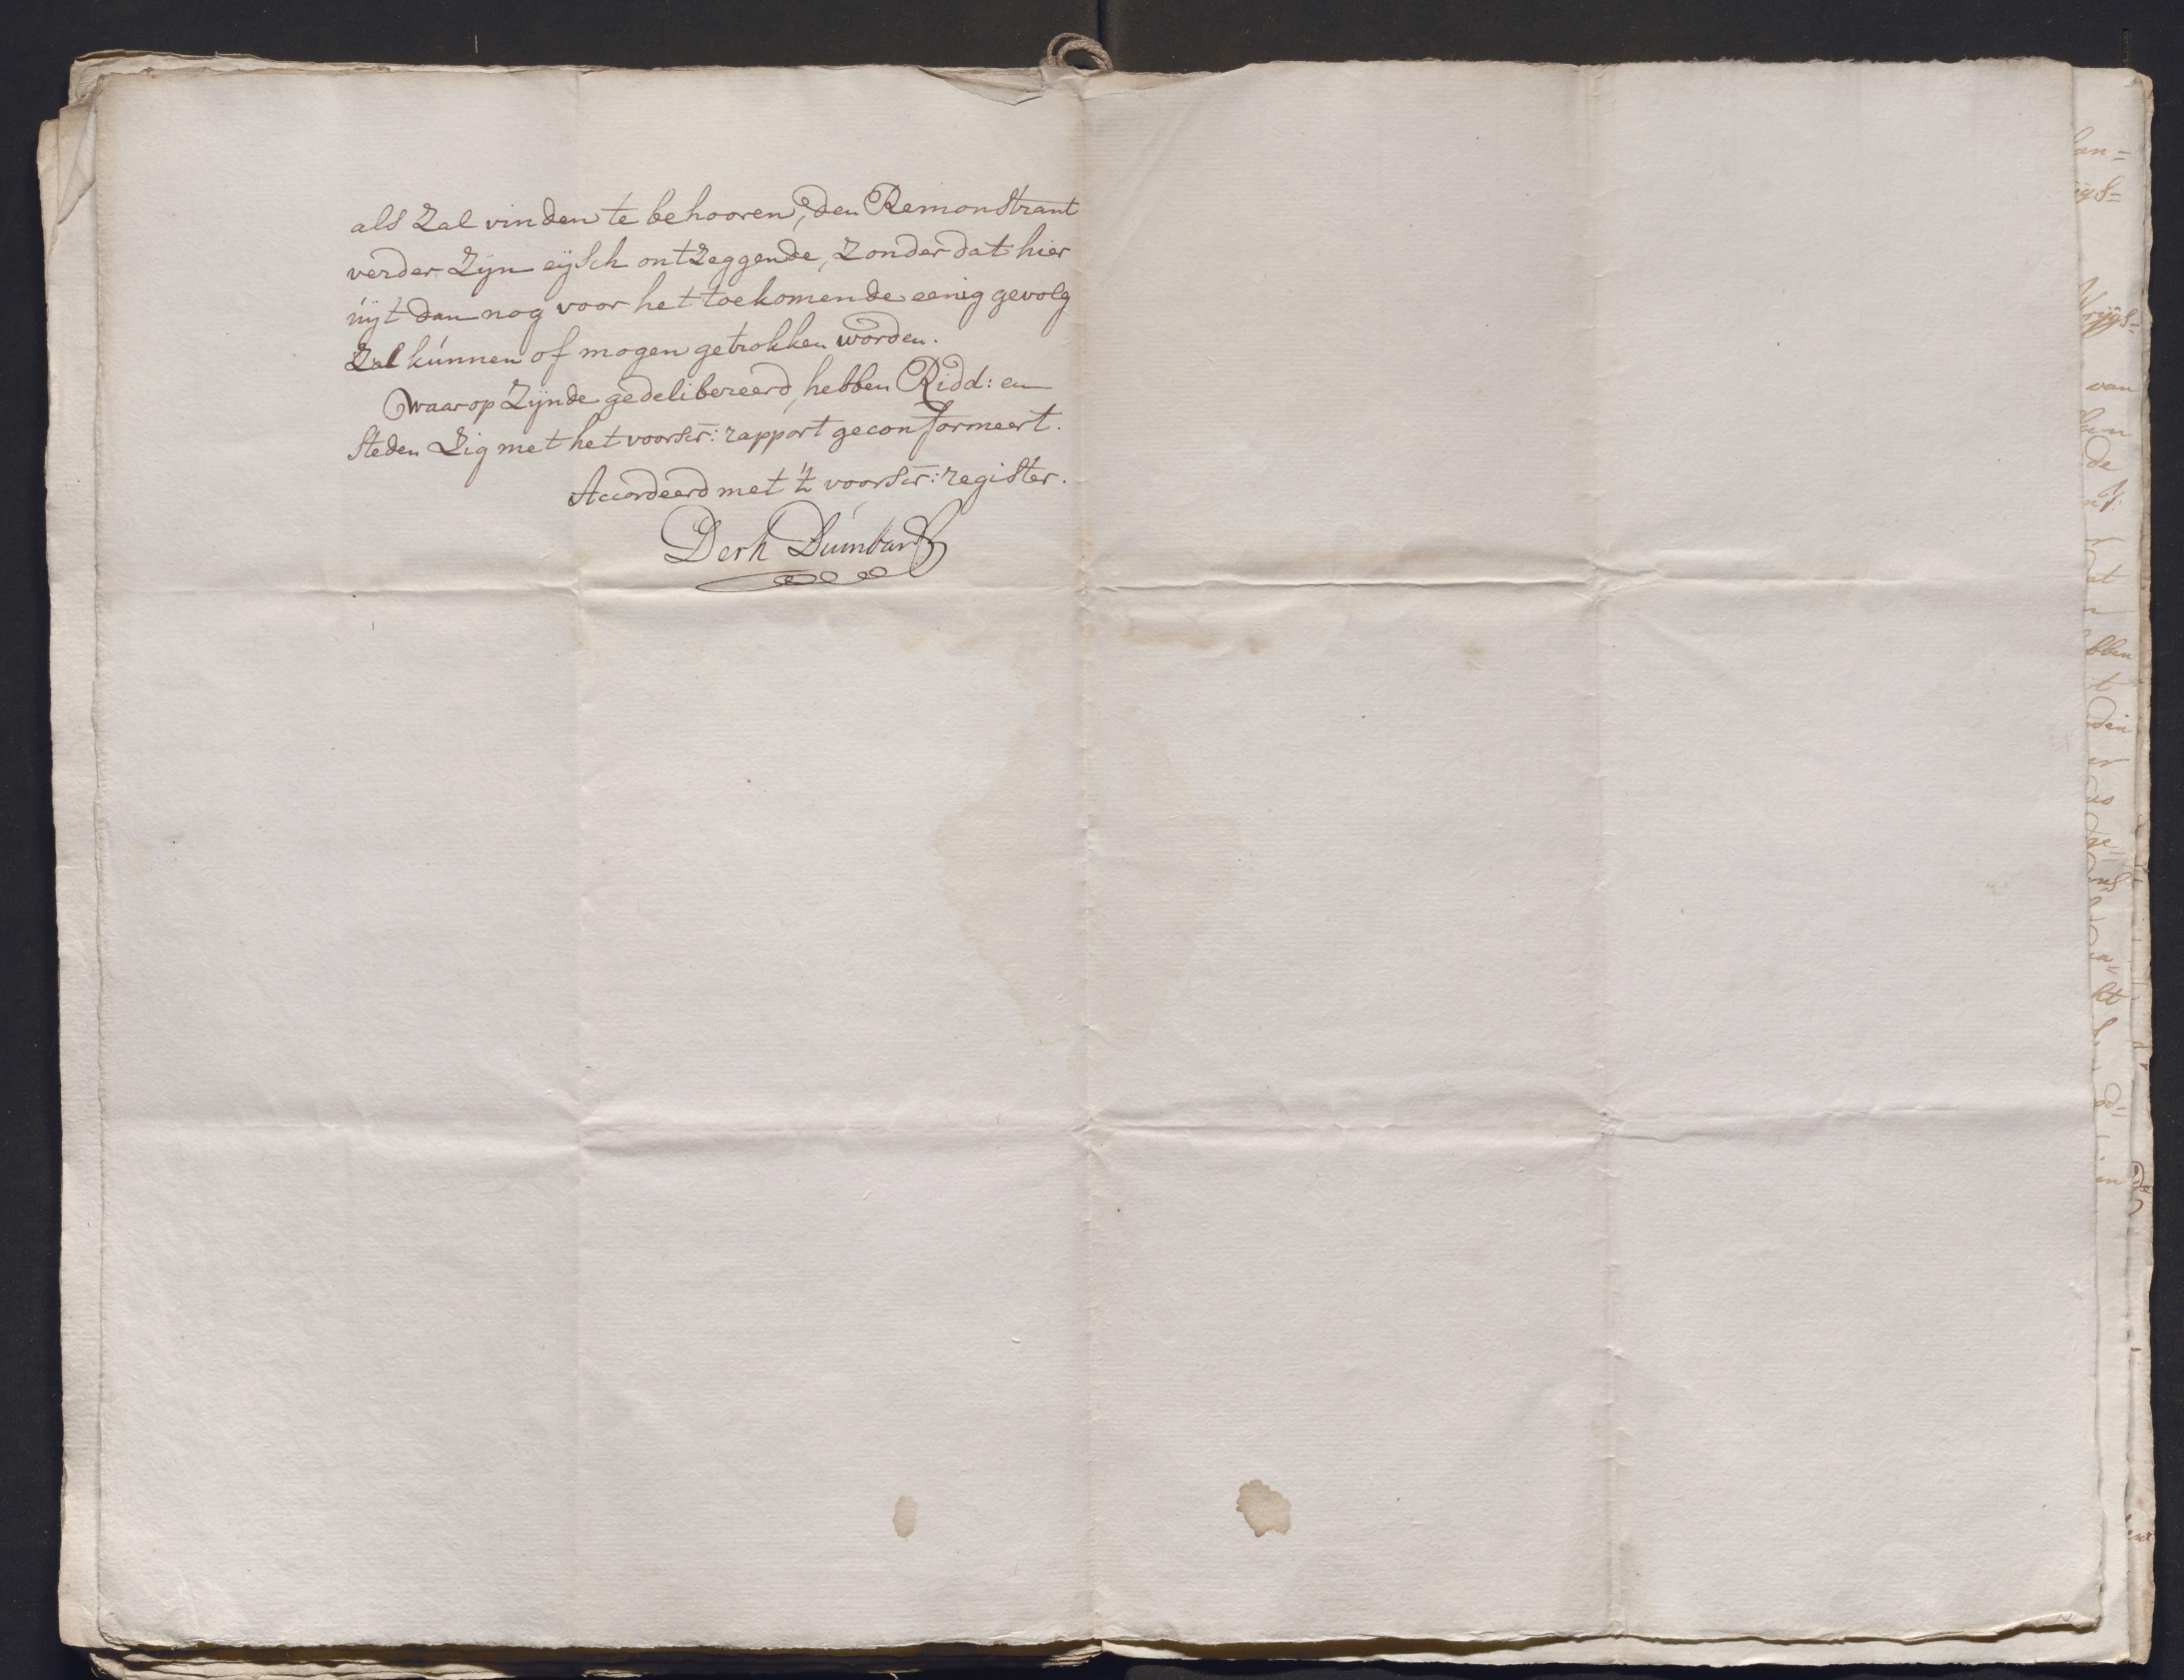 als Zal vinden te behooren, den Remonstrant
verder Zijn eijsch ontzeggende, Zonder dat hier
uijt dan nog voor het toekomende eenig gevolg
Zal kúnnen of mogen getrokken worden.
Waar op Zijnde gedelibereerd, hebben Ridd: en
Steden Zig met het voorscr: rapport geconformeert.
Accordeerd met 't voorscr: register.
Derk Dumbar
van
de